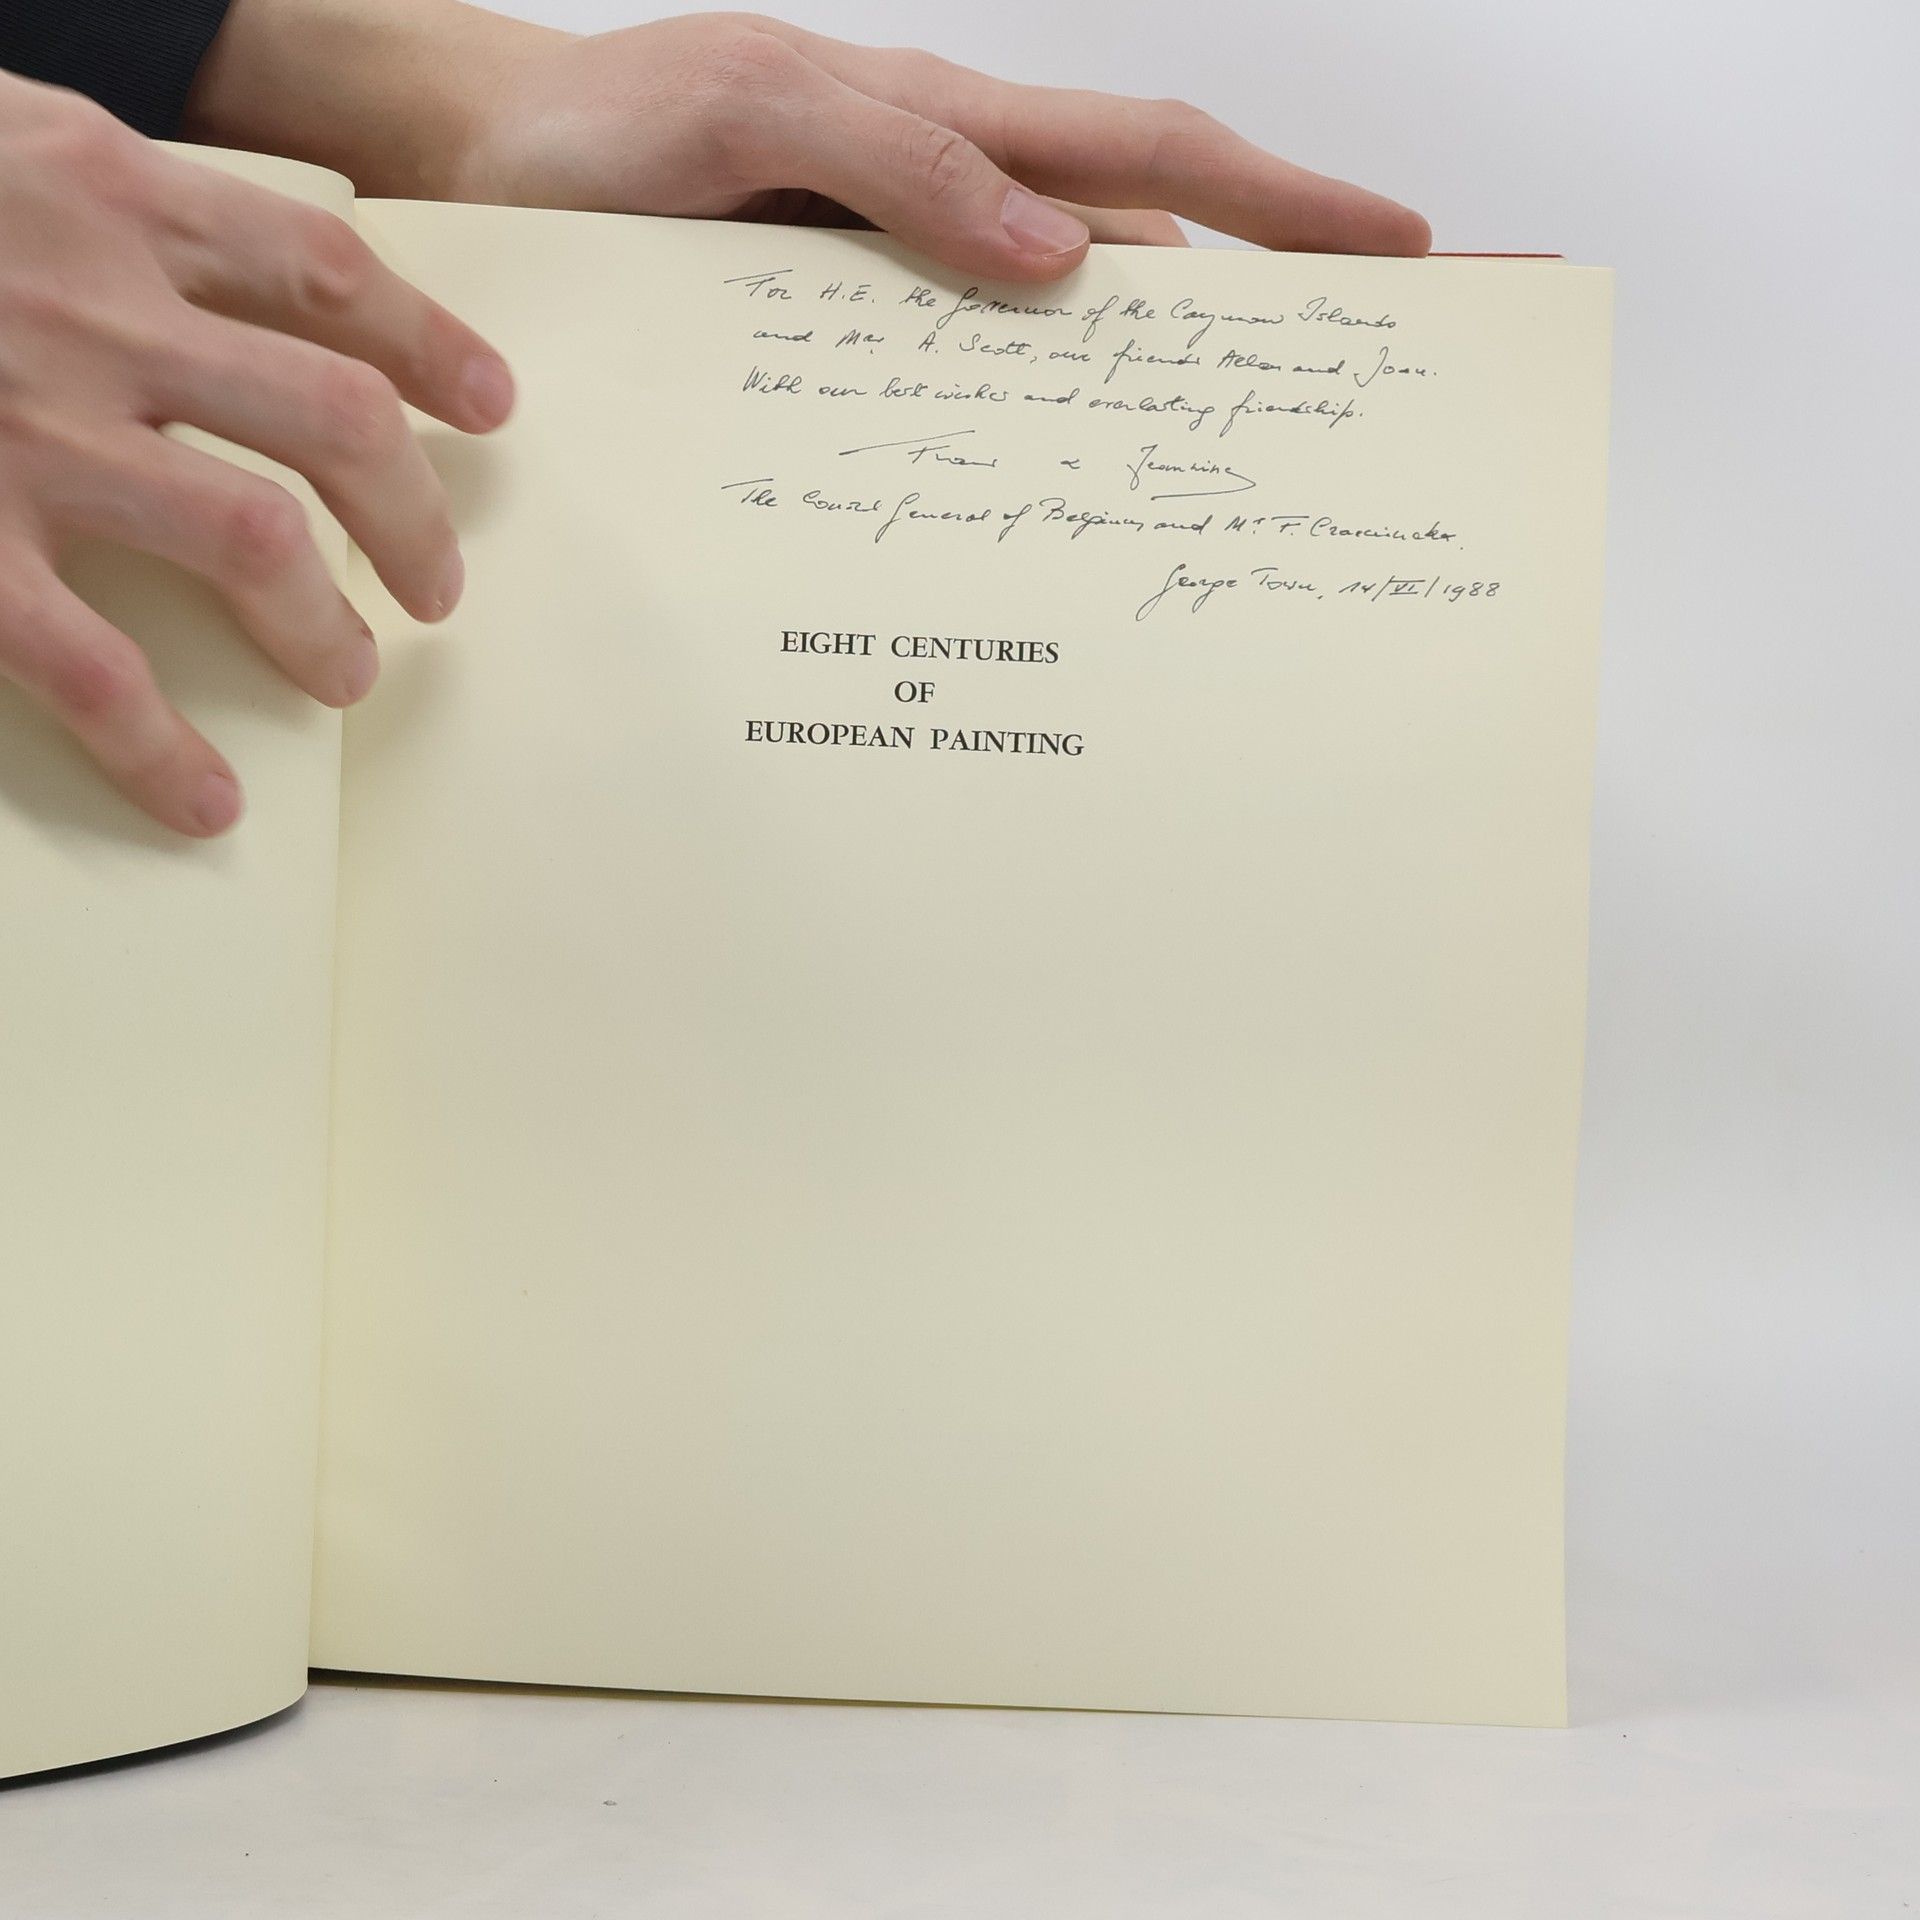 To H.E. the Governor of the Cayman Islands
and Mrs A. Scott, our friends Allan and Joan.
With our best wishes and everlasting friendship.
& Jeannine
The Consul General of Belgium and Mrs F.
George Town, 14/VI/1988
EIGHT CENTURIES
OF
EUROPEAN PAINTING